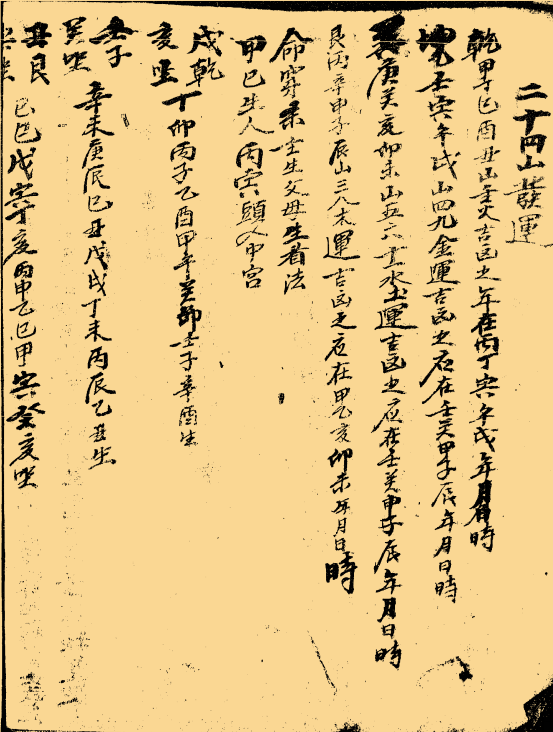 二十四山發運
乾甲子巳酉丑山金火吉凶之年在丙丁寅午戌年月日時
壬寅午戌山四九金運吉凶之应在壬癸甲子辰年月日時
庚癸亥卯未山五六土水土運吉凶之应在壬癸申子辰年月日時
艮丙辛申子辰山三八木運吉凶之应在甲乙亥卯未年月日時
命穿生父母生看法
甲巳生人丙寅頭入中宫
戌乾
亥
丁卯丙子乙酉甲午癸卯壬子辛酉生
壬子
癸
辛未庚辰巳丑戊戌丁未丙辰乙丑生
丑艮
己巳戊寅丁亥丙申乙巳甲寅癸亥